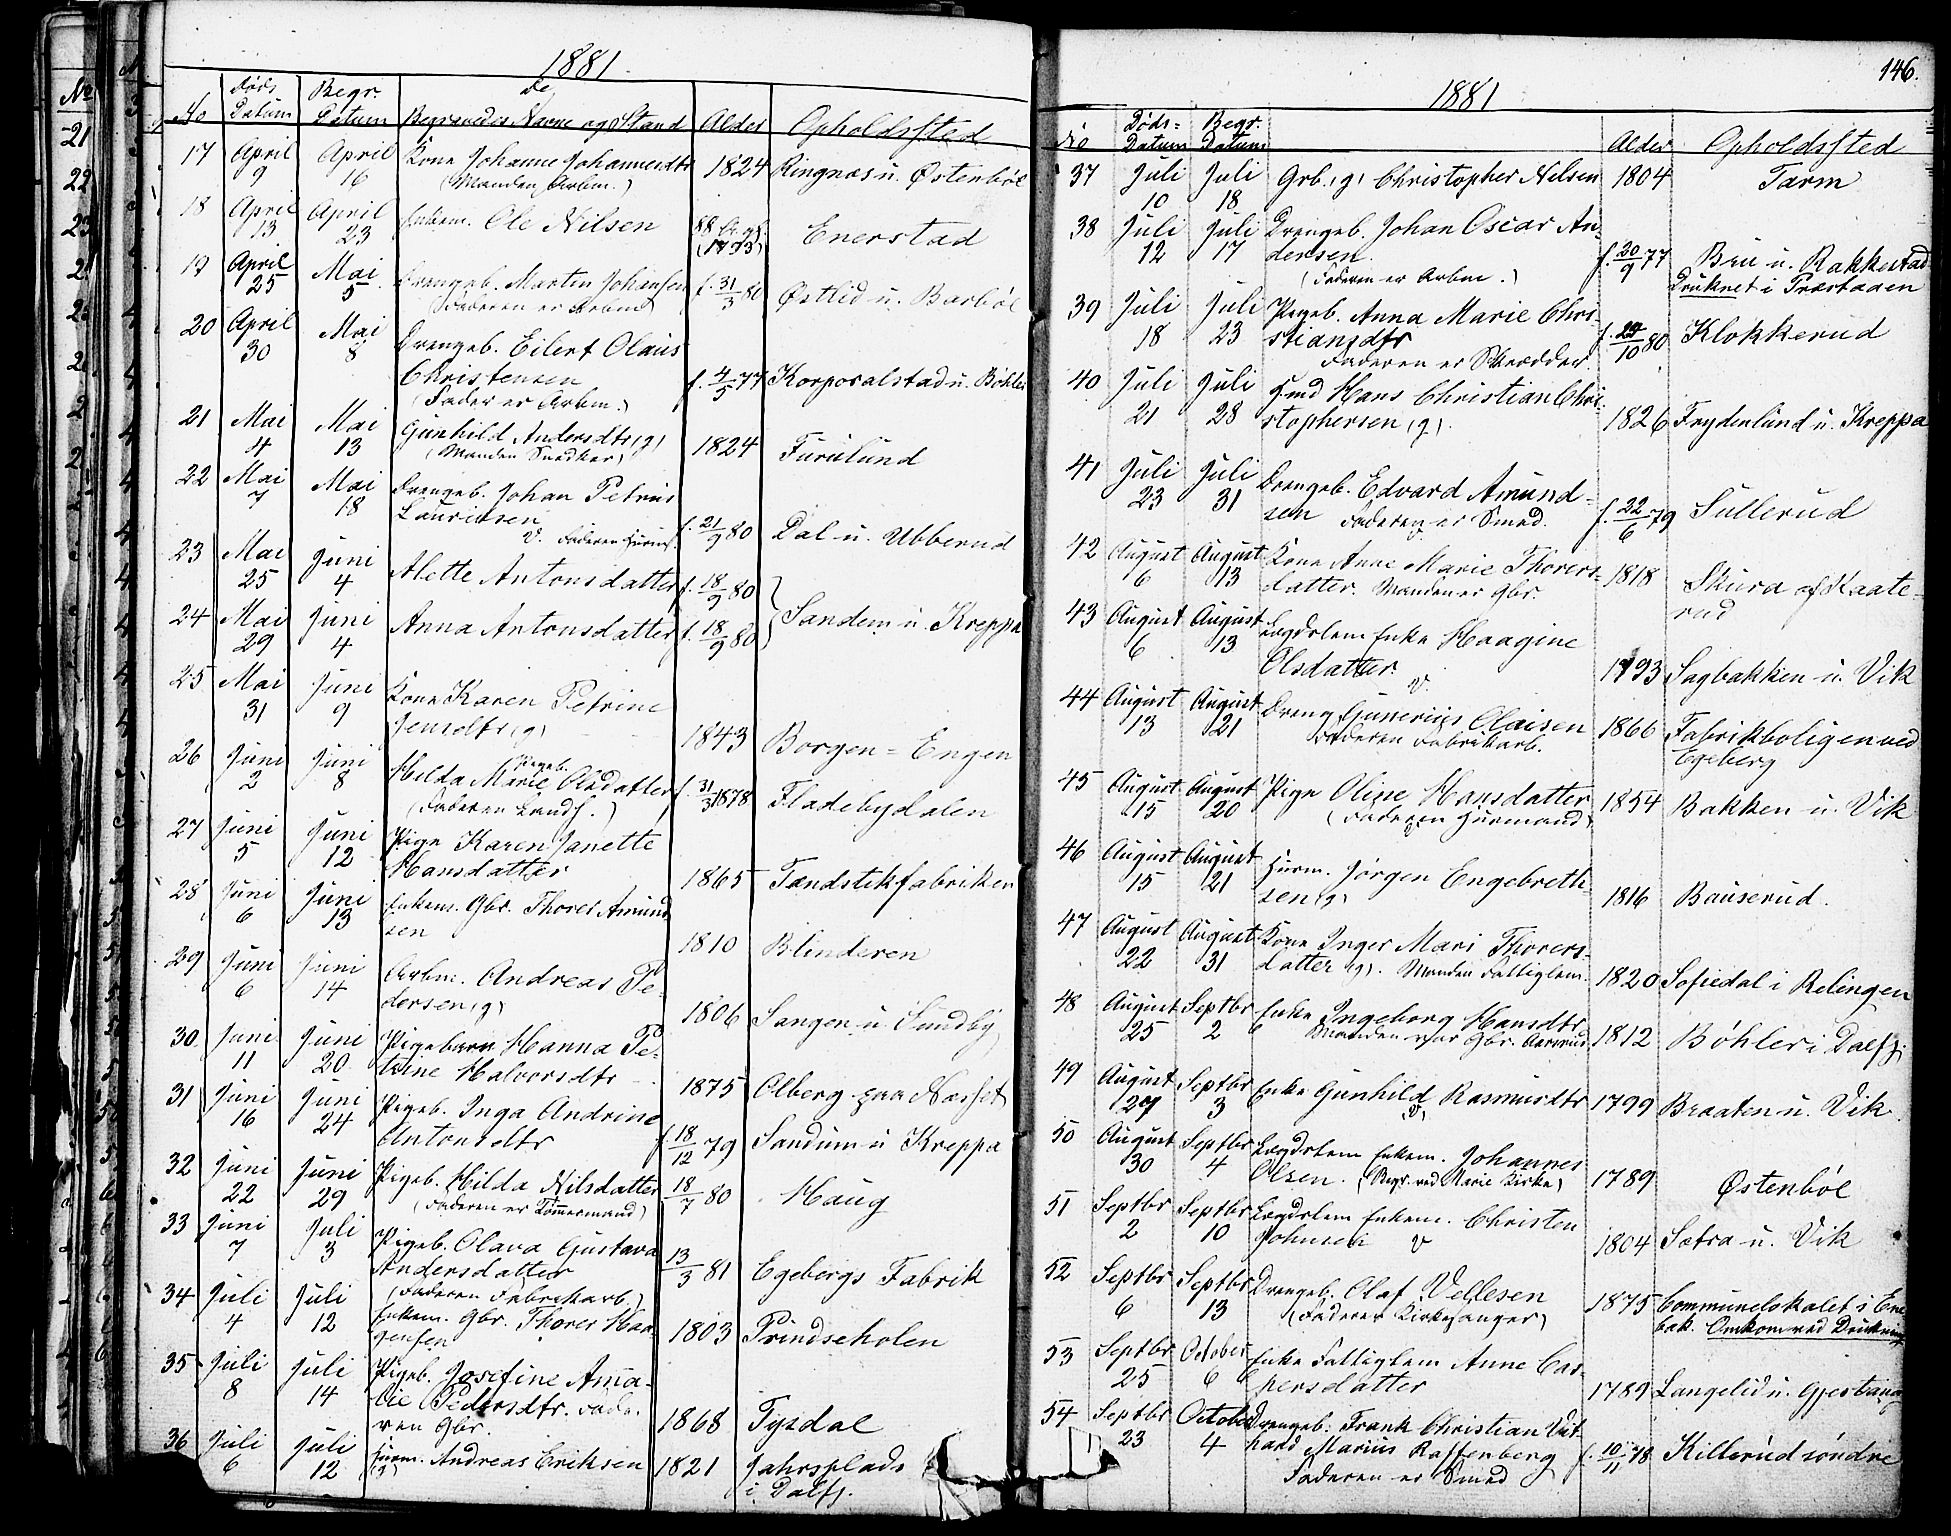 1881.
No
Døds Datum
Begr. Datum
De Begravedes Navne og Stand
Alder
Opholdssted
17 April 9 April 16 Kone Johanne Johannesdtr 1824 Ringnæs u. Østenbøl
(Manden Arbm.)
18 April 13 April 23 Enkem. Ole Nilsen 88 Aar gl. (1793) Enerstad
19 April 25 Mai 5 Drengeb. Martin Johansen f. 31/3 80 Østlid u. Barbøl
(Faderen er Arbmd)
20 April 30 Mai 8 Drengeb. Eilert Olaus
Christensen f. 4/5 77 Korporalstad u. Bøhler
(Fader er Arbm.)
21 Mai 4 Mai 13 Gunhild Andersdtr (g) 1824 Furulund
(Manden Snedker)
22 Mai 7 Mai 18 Drengeb. Johan Petrus
Lauritsen f. 21/9 80 Dal u. Ubberud
V. Faderen Huusm.
23 Mai 25 Juni 4 Alette Antonsdatter f. 18/9 80
24 Mai 29 Juni 4 Anna Antonsdatter f. 18/9 80 } Sandem u. Kreppa
25 Mai 31 Juni 9 Kone Karen Petrine
Jensdtr (g) 1843 Borgen = Engen
26 Juni 2 Juni 8 Pigeb.
Hilda Marie Olsdatter f. 31/3 1878 Fladebydalen
(Faderen Landh.)
27 Juni 5 Juni 12 Pige Karen Janette
Hansdatter 1865 Tændstikfabriken
28 Juni 6 Juni 13 Enkem. Gbr. Thorer Amund
sen 1810 Blinderen
29 Juni 6 Juni 14 Arbm. Andreas Pe-
dersen (g) 1806 Sangen u. Sundby
30 Juni 11 Juni 20 Pigebarn Hanna Pe-
trine Halvorsdtr 1875 Olberg paa Næsset
31 Juni 16 Juni 24 Pigeb. Inga Andrine
Antonsdtr f. 18/12 79 Sandum u Kreppa
32 Juni 22 Juni 29 Pigeb. Hilda Nilsdatter 18/7 80 Haug
(Faderen er Tømmermand)
33 Juni 7 Juli 3 Pigeb. Olava Gustava
Andersdatter 13/3 81 Egebergs Fabrik
(Faderen Fabrikarb.)
34 Juli 4 Juli 12 Enkem. Gbr. Thorer Haa
gensen 1803 Prindseholen
35 Juli 8 Juli 14 Pigeb. Josefine Ama-
lie Pedersdtr. Fade-
ren Gbr. 1868 Tysdal
36 Juli 6 Juli 12 Huusm. Andreas Eriksen 1821 Jahrsplads
(g) i Dalfj.
146.
1881
No
Døds-Datum
Begr. Datum
Alder
Opholdssted
37 Juli 10 Juli 18 Grb. (g) Christopher Nilsen 1804 Tarm
38 Juli 12 Juli 17 Drengeb. Johan Oscar An-
dersen f. 20/9 77 Bru u. Rakkestad
(Faderen er Arbm.) Druknet i Præstaaen
39 Juli 18 Juli 23 Pigeb. Anna Marie Chri-
stiansdtr f. 10 80 Klokkerud
Faderen er Skrædder.
40 Juli 21 Juli 28 Hans Christian Chri-
stophersen (g). 1826 Frydenlund u. Kreppa
41 Juli 23 Juli 31 Drengeb. Edvard Amund-
sen Faderen er Smed. f. 22/6 79 Sullerud
42 August 6 August 13 Kone Anne Marie Thorers-
datter. Manden er Gbr. 1818 Skura af Kaate-
rud
43 August 6 August 13 Lægdslem Enke Haagine
Olsdatter. V. 1793 Sagbakken u. Vik
44 August 13 August 21 Dreng Gunerius Olaisen 1866 Fabrikboligen ved
Faderen Fabrikarb. Egeberg
45 August 15 August 20 Pige Oline Hansdatter 1854 Bakken u. Vik
(Faderen Huusmand)
46 August 15 August 21 Huusm. Jørgen Engebreth-
sen (g) 1816 Bauserud.
47 August 22 August 31 Kone Inger Mari Thorers-
datter (g). Manden Fattiglem. 1820 Sofiedal i Relingen
48 August 25 Septbr 2 Enke Ingeborg Hansdtr 1812 Bøhler i Dalfj.
Manden var Gbr.
49 August 27 Septbr 3 Enke Gunhild Rasmusdtr 1799 Braaten u. Vik
V)
50 August 30 Septbr 4 Lægdslem Enkem. Johannes
Olsen. (Begr. ved Marie Kirke) 1789 Østenbøl
51 Septbr 2 Septbr 10 Lægdslem Enkem. Christen
Johnsen V 1804 Sætra u. Vik
52 Septbr 6 Septbr 13 Drengeb. Olaf Vellesen 1875 Communelokalet i Ene
(Faderen Kirkesanger) bak. Omkom ved Drukning
53 Septbr 25 October 6 Enke Fattiglem Anne Cas-
persdatter 1789 Langelid u. Gjestang
54 Septbr 23 October 4 Drengeb. Frank Christian Vil-
hard Marius Raffenberg f. 10/11 78 Killerud søndre
Faderen er Smed